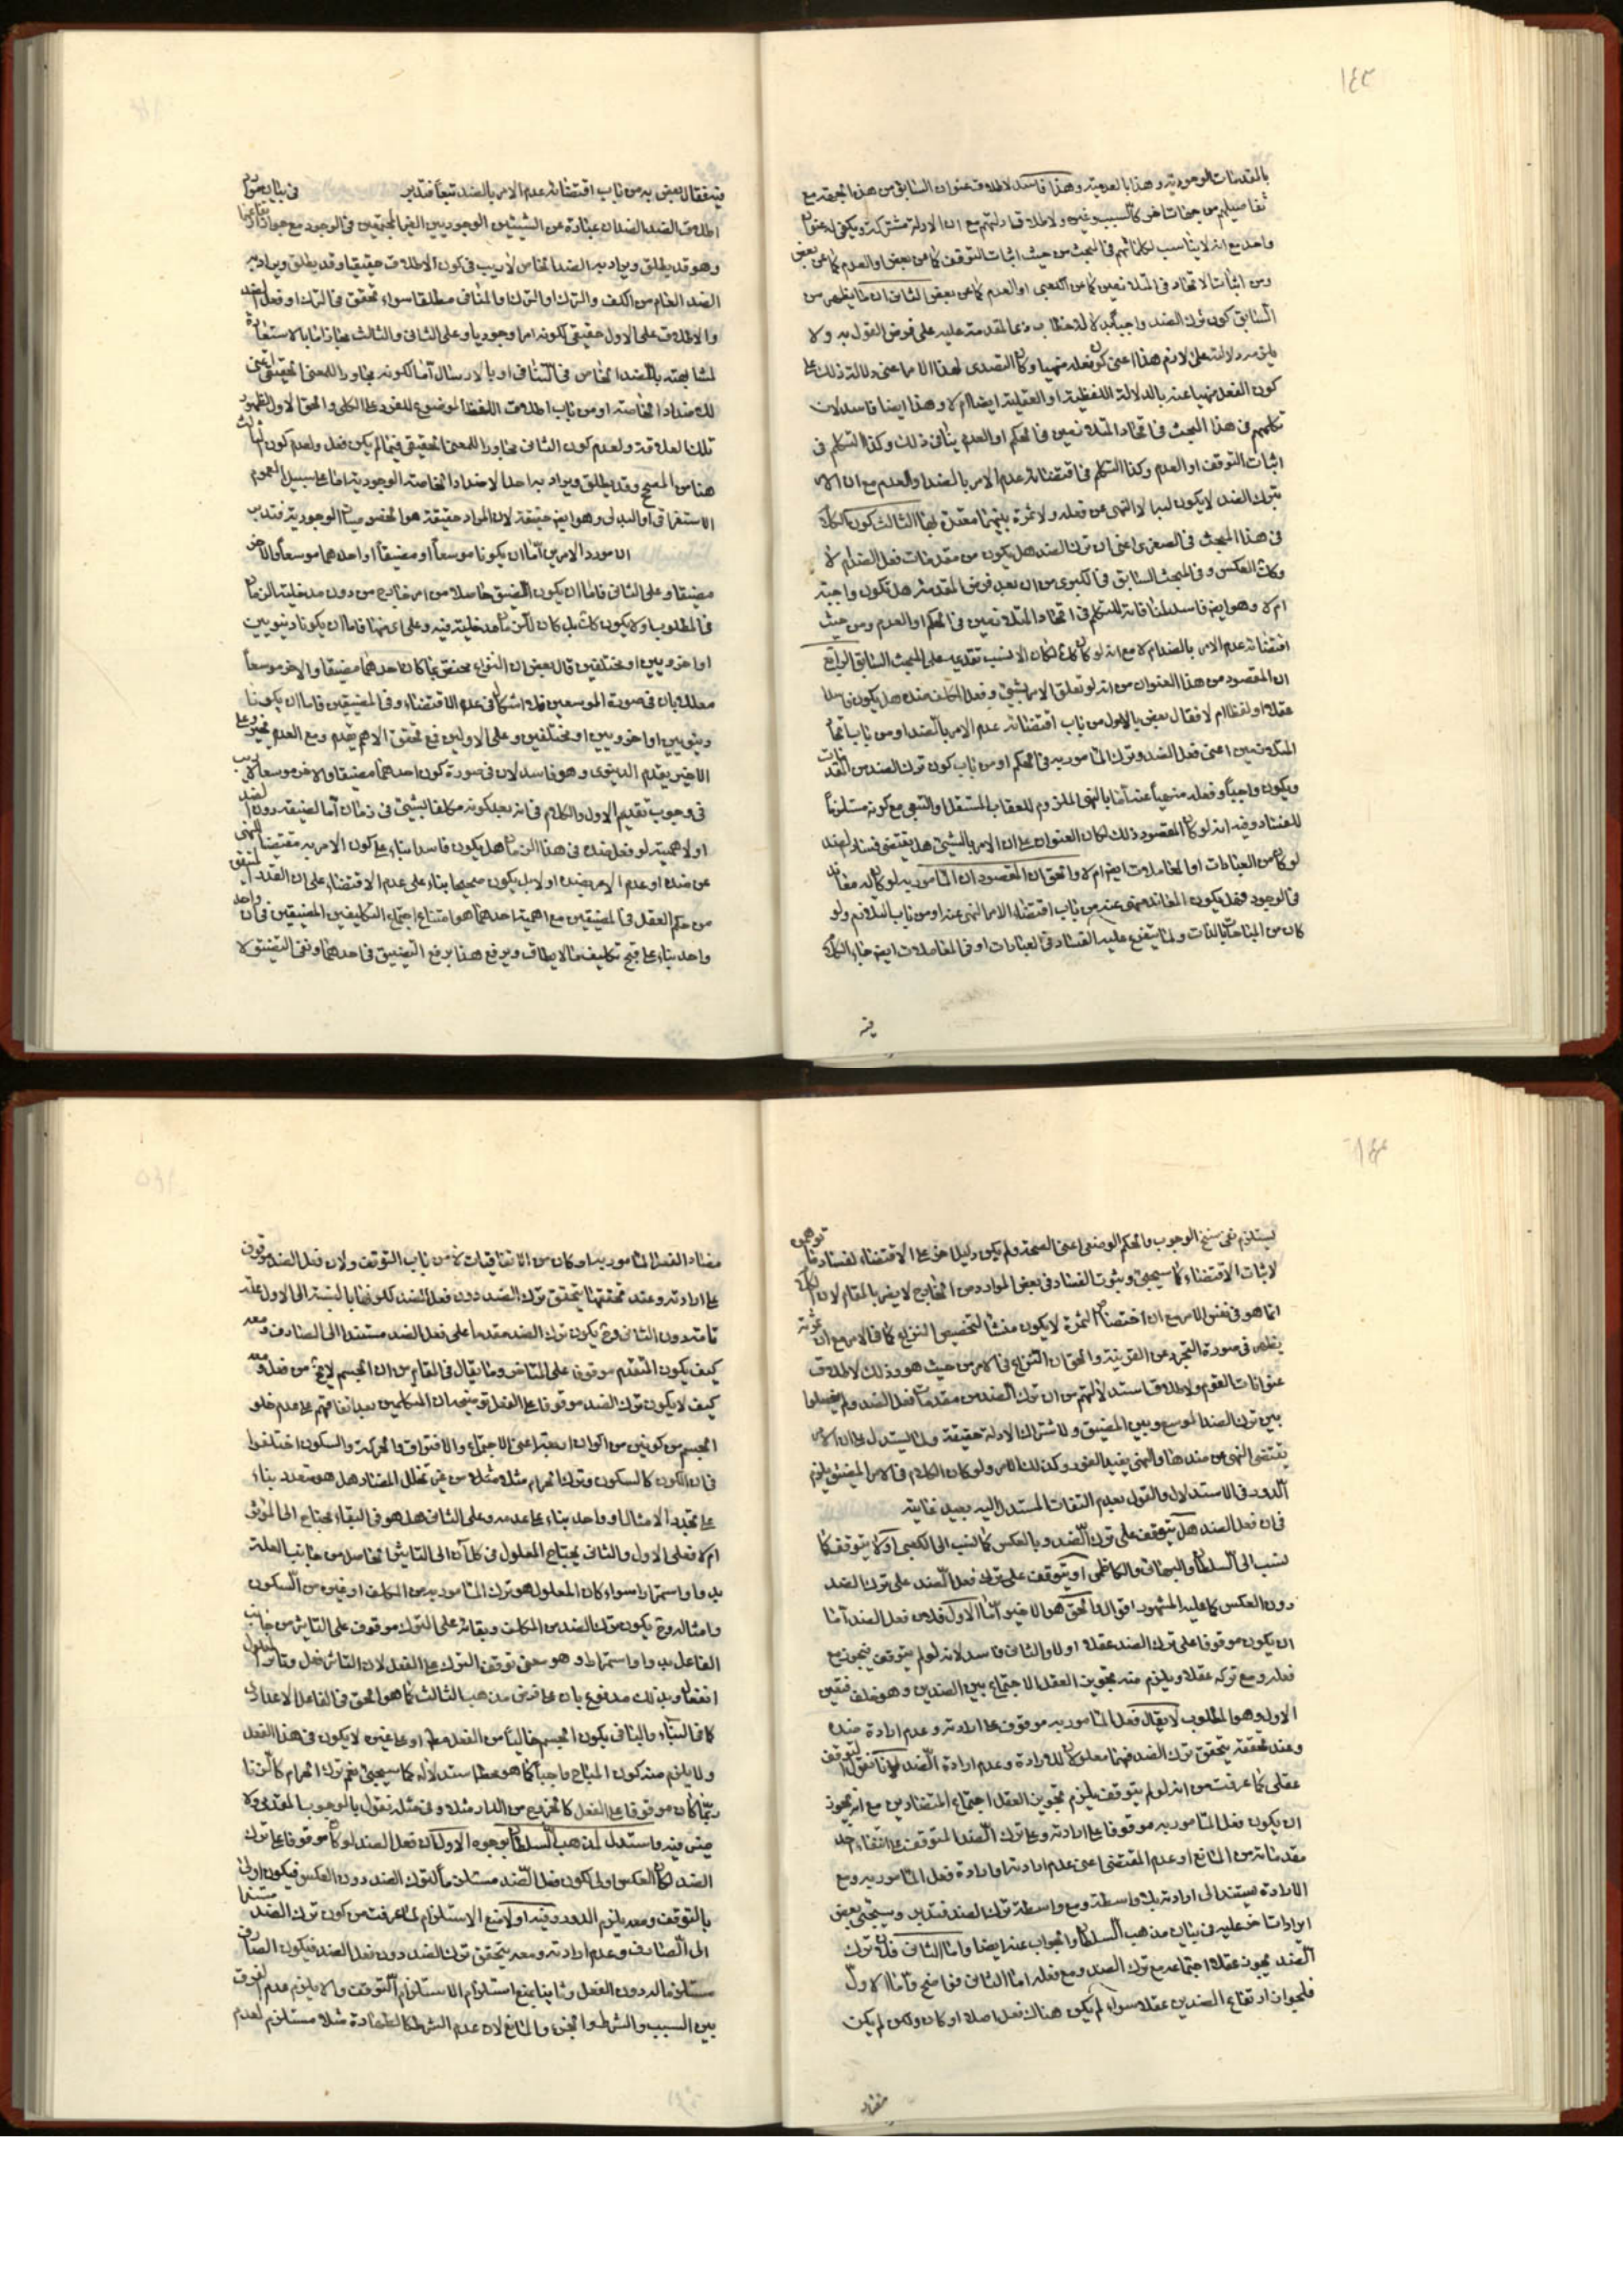 ١٤٣
بالمقدمات الوجودية وهذا بالعدمية وهذا فاسد لاطلاق عنوان السابق من هذه الجهة مع
تفاصيلهم من جهات اخر كالسبب وغيره ولاطلاق ادلتهم مع ان الادلة مشتركة ويكفي له عنوان
واحد مع انه لا يناسب لكلماتهم في المبحث من حيث اثبات التوقف كما عن بعض والعدم كما عن بعض
ومن اثبات الاتحاد في المتلازمين كما عن الكعبي او العدم كما عن بعض الثاني ان ما يظهر من
السابق كون ترك الضد واجبا بدلالة خطاب ذي المقدمة عليه على فرض القول به ولا
يلزمه دلالته على لازم هذا اعني كون فعله منهيا وكان التصدي لهذا الامر اعني دلالة ذلك على
كون الفعل منهيا عنه بالدلالة اللفظية او العقلية ايضا ام لا وهذا ايضا فاسد لان
تكلمهم في هذا المبحث في اتحاد المتلازمين في الحكم او العدم ينافي ذلك وكذا التكلم في
اثبات التوقف او العدم وكذا التكلم في اقتضائه عدم الامر بالضد او العدم مع ان الامر
بترك الضد لا يكون لبا الا النهي عن فعله ولا ثمرة بينهما معقدة لها الثالث كون الكلام
في هذا المبحث في الصغرى اعني ان ترك الضد هل يكون من مقدمات فعل الضد ام لا
وكان العكس وفي المبحث السابق في الكبرى من ان بعد فرض المقدمة هل تكون واجبة
ام لا وهو ايضا فاسد لمنافاته للتكلم في اتحاد المتلازمين في الحكم او العدم ومن حيث
اقتضائه عدم الامر بالضد ام لا مع انه لو كان كذلك لكان الانسب تقديمه على المبحث السابق الرابع
ان المقصود من هذا العنوان من انه لو تعلق الامر بشيء وفعل المكلف ضده هل يكون فاسدا
عقلا او لفظا ام لا فقال بعض بالاول من باب اقتضائه عدم الامر بالضد او من باب اتحاد
المتلازمين اعني فعل الضد وترك المأمور به في الحكم او من باب كون ترك الضد من المقدمات
ويكون واجبا وفعله منهيا عنه اما بالنهي الملزوم للعقاب المستقل او التبعي مع كونه مستلزما
للفساد وفيه انه لو كان المقصود ذلك لكان العنوان على ان الامر بالشيء هل يقتضي فساد لضده
لو كان من العبادات او المعاملات ايضا ام لا والحق ان المقصود ان المأمور به لو كان له معاند
في الوجود فهل يكون المعاند منهي عنه من باب اقتضاء الامر النهي عنه او من باب التلازم ولو
كان من المباحات بالذات ولما يتفرع عليه الفساد في العبادات او في المعاملات ايضا جاء الكلام
فيه
فيه فقال بعض به من باب اقتضائه عدم الامر بالضد تبعا فتدبر في بيان موارد
اطلاق الضد الضدان عبارة عن الشيئين الوجوديين الغير المجتمعين في الوجود مع جواز ارتفاعهما
وهو قد يطلق ويراد به الضد الخاص لا ريب في كون الاطلاق حقيقيا وقد يطلق ويراد به
الضد العام من الكف والترك او الترك والمنافي مطلقا سواء تحقق في الترك او فعل الضد
والاطلاق على الاول حقيقي لكونه امرا وجوديا وعلى الثاني والثالث مجاز اما بالاستعارة
لمشابهته بالضد الخاص في التنافي او بالارسال اما لكونه مجاورا للمعنى الحقيقي اعني
للاضداد الخاصة او من باب اطلاق اللفظ الموضوع للفرد على الكلي والحق الاول لظهور
تلك العلاقة ولعدم كون الثاني مجاورا للمعنى الحقيقي فيما لم يكن فعل ولعدم كون الثالث
هنا من المصحح وقد يطلق ويراد به احد الاضداد الخاصة الوجودية اما على سبيل العموم
الاستغراقي او البدلي وهو ايضا حقيقة لان المراد حقيقة هو الخصوصيات الوجودية فتدبر
ان مورد الامرين اما ان يكونا موسعا او مضيقا او احدهما موسعا والاخر
مضيقا وعلى الثاني فاما ان يكون التضيق حاصلا من امر خارج من دون مدخلية الزمان
في المطلوب او لا يكون كذلك بل كان للزمان مدخلية فيه وعلى اي منهما فاما ان يكونا دنيويين
او اخرويين او مختلفين قال بعض ان النزاع مختص بما كان احدهما مضيقا والاخر موسعا
معللا بان في صورة الموسعين فلا اشكال في عدم الاقتضاء وفي المضيقين فاما ان يكونا
دنيويين او اخرويين او مختلفين وعلى الاولين فمع تحقق الاهم يقدم ومع العدم تخير وعلى
الاخير يقدم الدنيوي وهو فاسد لان في صورة كون احدهما مضيقا والاخر موسعا لا ريب
في وجوب تقديم الاول والكلام في انه بعد كونه مكلفا بشيء في زمان اما لضيقه دون الضد
او لاهميته لو فعل ضده في هذا الزمان هل يكون فاسدا بناء على كون الامر به مقتضيا للنهي
عن ضده او عدم الامر بضده او لا بل يكون صحيحا بناء على عدم الاقتضاء على ان القدر المتيقن
من حكم العقل في المضيقين مع اهمية احدهما هو امتناع اجتماع التكليفين المضيقين في ان واحد
واحد بناء على قبح تكليف ما لا يطاق ويرفع هذا برفع التضيق في احدهما ونفي التضيق لا
١٤٤
يستلزم نفي سنخ الوجوب والحكم الوضعي اعني الصحة ولم يكن دليل اخر على الاقتضاء لفساد ما توهم
لاثبات الاقتضاء كما سيجيء وثبوت الفساد في بعض الموارد من الخارج لا يضر بالمقام لان الكلام
انما هو في نفس الامر مع ان اختصاص الثمرة لا يكون منشأ لتخصيص النزاع كما في الامر مع ان ثمرته
يظهر في صورة التجرد عن القرينة والحق ان النزاع في الامر من حيث هو وذلك لاطلاق
عنوانات القوم ولاطلاق استدلالهم من ان ترك الضد من مقدمات فعل الضد ولم يفصلوا
بين ترك الضد الموسع وبين المضيق ولاشتراك الادلة حقيقة ولما استدل على ان الامر
يقتضي النهي عن ضدها والنهي يفيد الفور وكذلك الامر ولو كان الكلام في الامر المضيق يلزم
الدور في الاستدلال والقول بعدم التفات المستدل اليه بعيد غايته
في ان فعل الضد هل يتوقف على ترك الضد وبالعكس كما نسب الى الكعبي او لا يتوقف كما
نسب الى السلطان والبهائي والكاظمي او يتوقف على ترك فعل الضد على ترك الضد
دون العكس كما عليه المشهور اقوال والحق هو الاخير اما الاول فلان فعل الضد اما
ان يكون موقوفا على ترك الضد عقلا او لا والثاني فاسد لانه لو لم يتوقف فيجوز مع
فعله ومع تركه عقلا ويلزم منه تجويز العقل الاجتماع بين الضدين وهو خلف فتعين
الاول وهو المطلوب لا يقال فعل المأمور به موقوف على ارادته وعدم ارادة ضده
وعند تحققه يتحقق ترك الضد فهما معلولان للارادة وعدم ارادة الضد لانا نقول التوقف
عقلي كما عرفت من انه لو لم يتوقف يلزم تجويز العقل اجتماع المتضادين مع انه يجوز
ان يكون فعل المأمور به موقوفا على ارادته وعلى ترك الضد المتوقف على انتفاء احد
مقدماته من المانع او عدم المقتضي اعني عدم ارادته او ارادة فعل المأمور به ومع
الارادة يستند الى ارادته بلا واسطة ومع واسطة ترك الضد فتدبر وسيجيء بعض
ايرادات اخر عليه في بيان مذهب السلطان والجواب عنه ايضا واما الثاني فلان ترك
الضد يجوز عقلا اجتماعه مع ترك الضد ومع فعله اما الثاني فواضح واما الاول
فلجواز ارتفاع الضدين عقلا سواء لم يكن هناك فعل اصلا او كان ولكن لم يكن
مضاد
مضاد الفعل المأمور به او كان من الاتفاقيات لا من باب التوقف ولان فعل الضد موقوف
على ارادته وعند تحققها يتحقق ترك الضد دون فعل الضد لكونها بالنسبة الى الاول علة
تامة دون الثاني وح يكون ترك الضد مقدما على فعل الضد مستندا الى الصارف ومعه
كيف يكون المتقدم موقوفا على المتاخر وما يقال في المقام من ان الجسم لا يخ من فعل ومعه
كيف لا يكون ترك الضد موقوفا على الفعل توضيحه ان المتكلمين بعد اتفاقهم على عدم خلو
الجسم من كونين من اكوان اربعة اعني الاجتماع والافتراق والحركة والسكون اختلفوا
في ان الكون كالسكون وترك الحرام مثلا مثلا من غير تخلل المضاد هل هو متعدد بناء
على تجدد الامثال او واحد بناء على عدمه وعلى الثاني هل هو في البقاء يحتاج الى المؤثر
ام لا فعلى الاول والثاني يحتاج المعلول في كل آن الى التاثير الحاصل من جانب العلة
بدوا واستمرارا سواء كان المعلول هو ترك المأمور به من المكلف او غيره من السكون
وامثاله وح يكون ترك الضد من المكلف وبقائه على الترك موقوف على التاثير من جانب
الفاعل بدوا واستمرارا وهو معنى توقف الترك على الفعل لان التاثير فعل وتاثر المعلول
انفعال وبذلك مدفوع بان على فرض مذهب الثالث كما هو الحق في الفاعل الاعدادي
كما في البناء والباني يكون الجسم خاليا من الفعل مط او على غيره لا يكون في هذا الفعل
ولا يلزم منه كون المباح واجبا كما هو محط استدلاله كما سيجيء نعم ترك الحرام كالزنا
ربما كان موقوفا على الفعل كالخروج من الدار مثلا وفي مثله نقول بالوجوب المقدمي ولا
ضير فيه واستدل لمذهب السلطان بوجوه الاول ان فعل الضد لو كان موقوفا على ترك
الضد لكان العكس اولى لكون فعل الضد مستلزما لترك الضد دون العكس فيكون اولى
بالتوقف ومعه يلزم الدور وفيه اولا منع الاستلزام لما عرفت من كون ترك الضد مستندا
الى الصارف وعدم ارادته ومعه يتحقق ترك الضد دون فعل الضد فيكون الصارف
مستلزما له دون الفعل وثانيا يمنع استلزام الاستلزام التوقف والا يلزم عدم الفرق
بين السبب والشرط والجزء والمانع لان عدم الشرط كالطهارة مثلا مستلزم لعدم